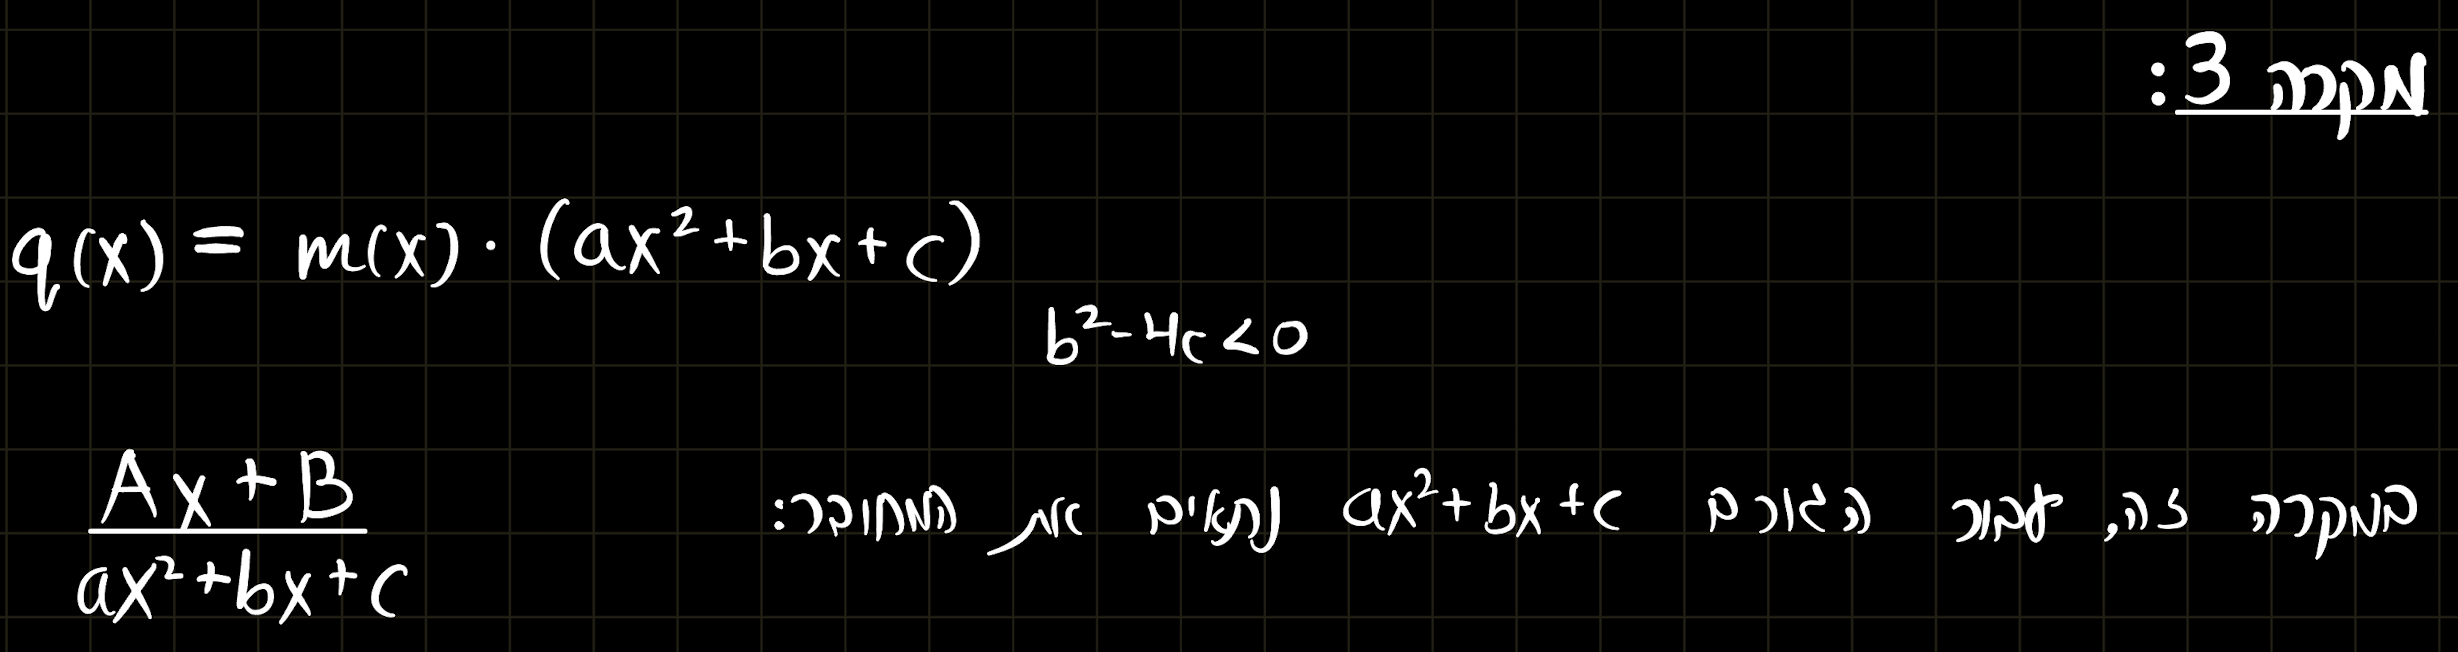 מקרה 3:
q(x) = m(x) · (ax²+bx+c)
b²-4c<0
במקרה זה, עבור הגורם ax²+bx+c נתאים את המחובר:
Ax+B
ax²+bx+c